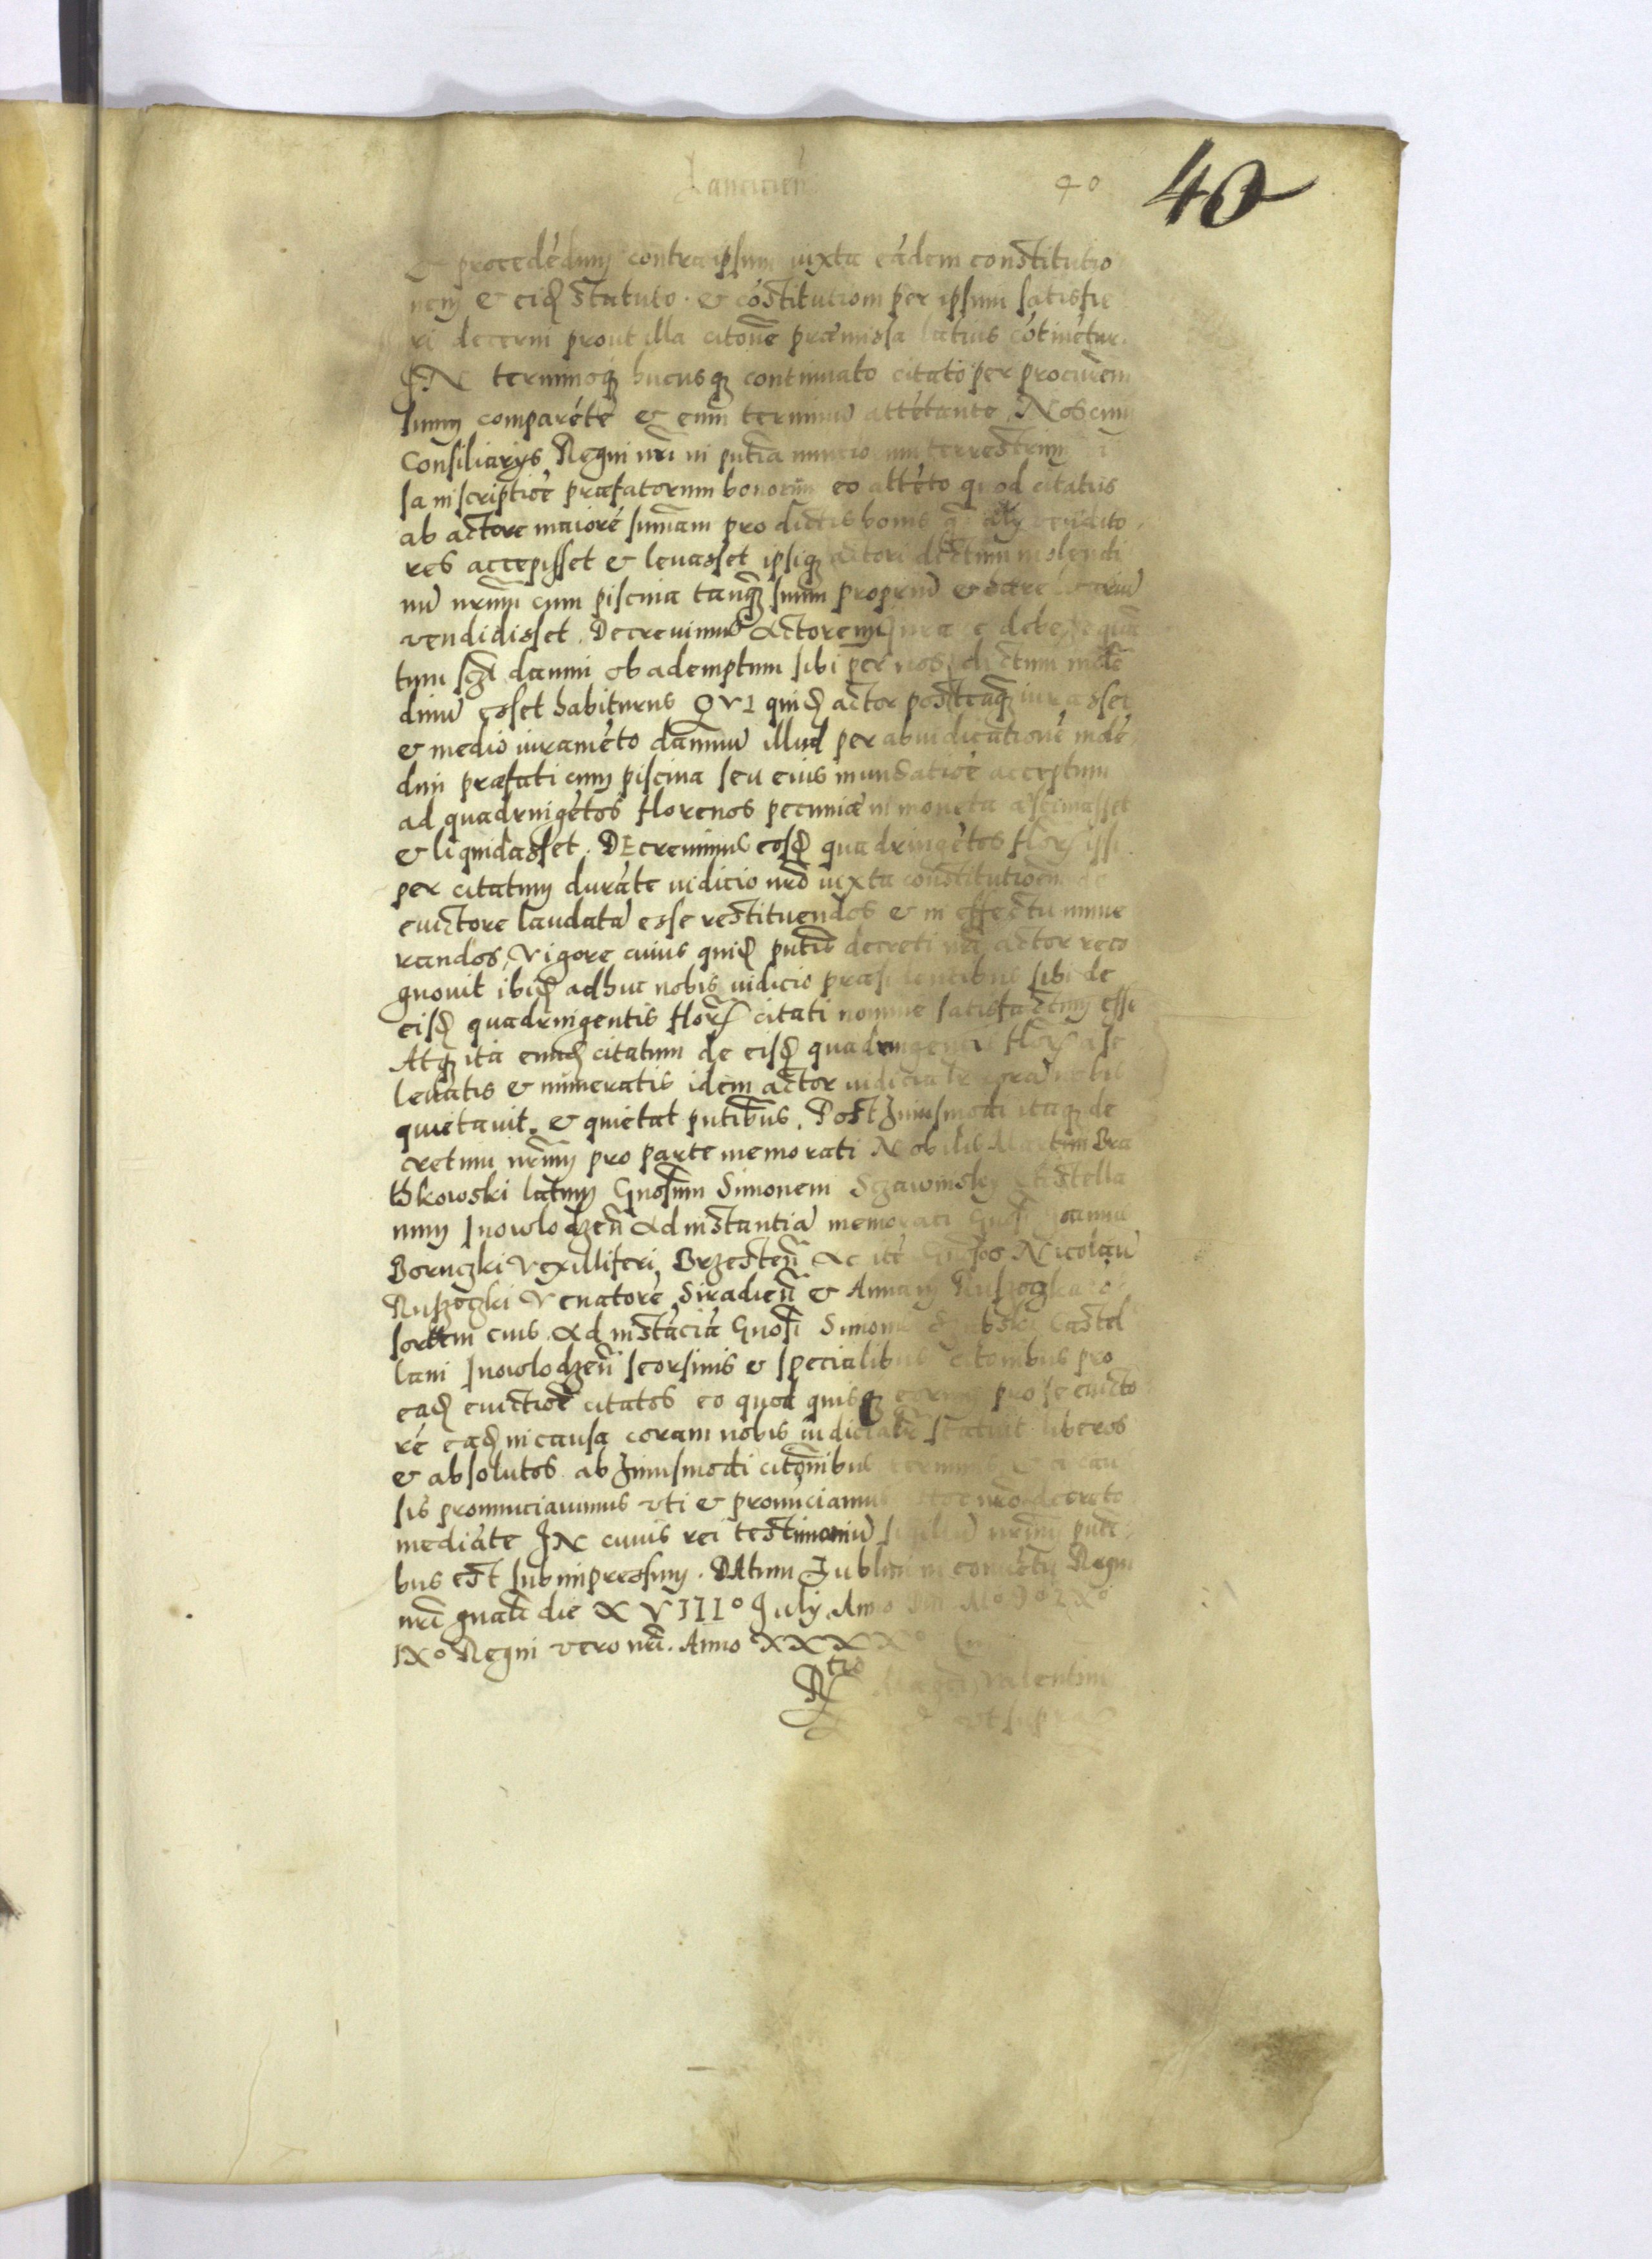 Lancicien̄
40 40
& procedēdum contra ipsum iuxta eādem constitutio
nem & eid statuto. & cōstitutioni per ipsum satisfie
ri decerni prout illa citōne præmissa latius cōtinētur.
IN terminoq hucusq continuato citato per procurem
suum comparēte & eum terminū attētante. Nos cum
Consiliarys Regni nri
sa inscriptiōe præfatorum bonorum eo attēto quod citatus
ab actore maiorē summam pro dictis bonis aly vendito
res accepisset & levasset ipsiq actori dictum molendi
nū nrum cum piscina tanq suum propriū &
vendidisset. Decrevimus Actorem
tum damni ob ademptum sibi per nos dictum molē
dinū esset habiturus QVI quid actor posteaq iurasset
& medio iuramēto damnū illud per abiudicationē molē
dini præfati cum piscina seu eius inundatiōe acceptum
ad quadringētos florenos pecuniæ in moneta æstimasset
& liquidasset. DEcrevimus eosd quadringētos flor ipsi
per citatum durāte iudicio nro iuxta constitutionem de
evictore laudata esse restituendos & in effectu nume
randos, Vigore cuius quid putis decreti nri actor reco
gnovit ibid adhuc nobis iudicio præsidentibus sibi de
eisd quadringentis flor citati nomine satisfactum esse
Atq ita eund citatum de eisd quadringentis flor a se
levatis & numeratis idem actor iudicialr corā nobis
quietavit. & quietat putibus. Post huiusmodi itaq de
cretum nrum pro parte memorati Nobilis Martini Bra
tkowski latum Gnosum Simonem Sczawinsky Castella
num Inowlodzen̄ Ad instantiā memorati Gnosi Joannis
Boruczki Vexilliferi Brzesten̄ Ac itē Gnosos Nicolaū
Ruszoczki Venatorē Siradien̄ & Annam Ruszoczka
sortem eius. Ad instāciā Gnosi Simonis Castel
lani Inowlodzen̄ seorsivis & specialibus citonibus pro
ead evictiōe citatos eo quod quisq eorum pro se evicto
rē ead in causa coram nobis iudicialr statuit liberos
& absolutos ab huiusmodi citōnibus terminis & a cau
sis pronunciavimus uti & pronūciamus Hoc nro decreto
mediāte IN cuius rei testimoniū sigillū nrum puti
bus est subimpressum. DAtum Lublini in conuētu Regni
nri gnali die XVIII° July Anno Dni M° D° LX°
IX° Regni vero nri. Anno XXXX°
Rtio Magci Valentini
ut supra